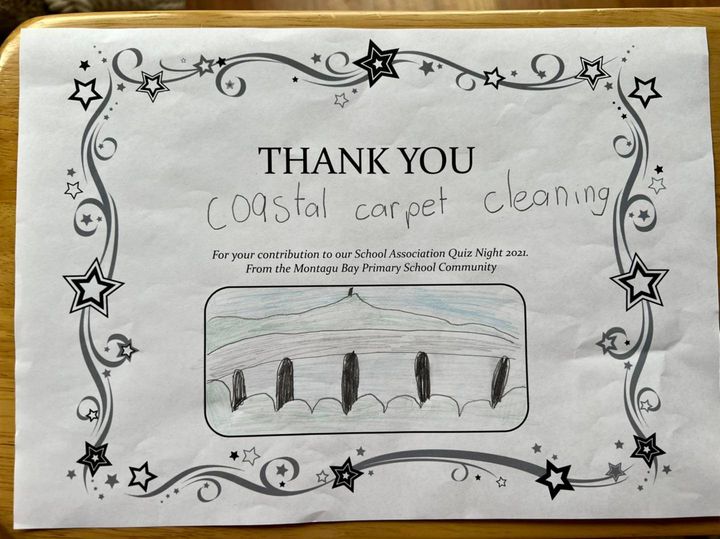 THANK YOU
coastal carpet cleaning
For your contribution to our School Association Quiz Night 2021.
From the Montagu Bay Primary School Community